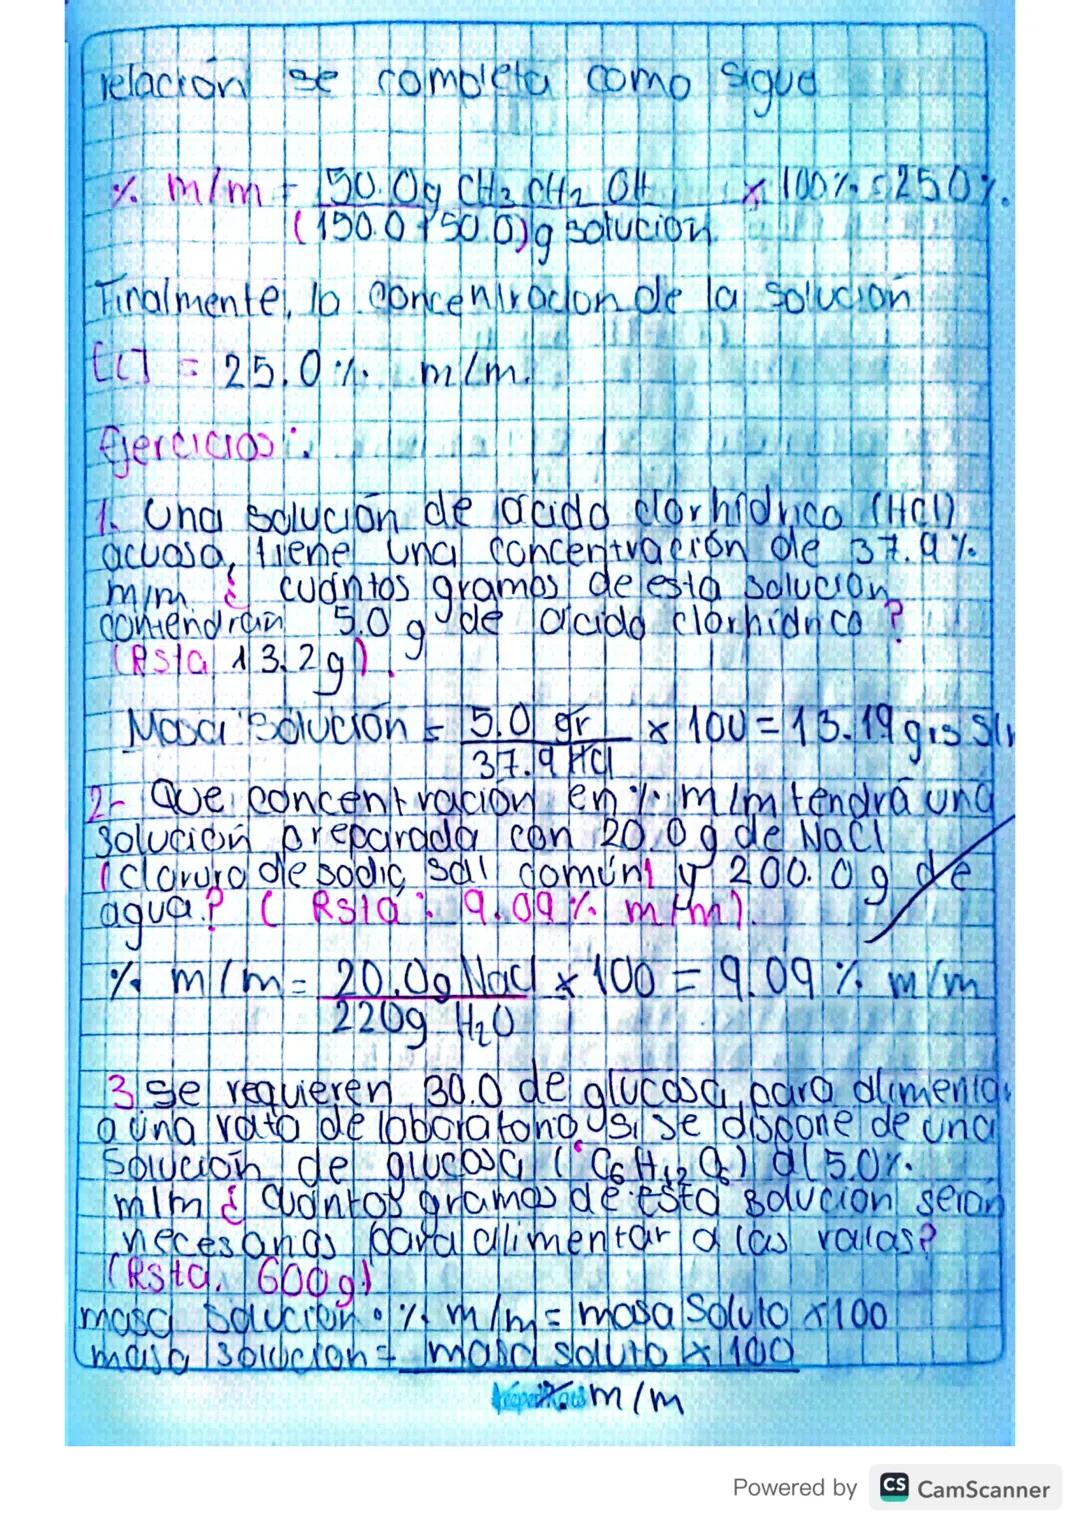 relación se completa como sigue
% m/m = 50.0g CH3 CH2 OH x 100% = 250%.
(150.0 + 50.0)g solución
Finalmente, la concentracion de la solución
[C] = 25.0% m/m.
Ejercicios:
1. Una solución de ácido clorhídrico (HCl)
acuosa, tiene una concentración de 37.9%
m/m. ¿ cuántos gramos de esta solución
contendrán 5.0 g de ácido clorhídrico?
(Rsta 13.2g).
Masa solución = 5.0 gr x 100 = 13.19 grs Sln
37.9 HCl
2- Que concentración en % m/m tendrá una
solución preparada con 20.0g de NaCl
(cloruro de sodio, sal común) y 200.0g de
agua? ( Rsta: 9.09% m/m).
% m/m = 20.0g Nacl x 100 = 9.09 % m/m
220g H2O
3 se requieren 30.0 de glucosa para alimentar
a una rata de laboratorio, si se dispone de una
solución de glucosa (C6 H12 O6) al 5.0%.
m/m ¿ Cuántos gramos de esta solución serán
necesarios para alimentar a las ratas?
(Rsta. 600g)
masa solución • % m/m = masa Soluto x 100
masa solución = masa soluto x 100
% m/m
Powered by CS CamScanner